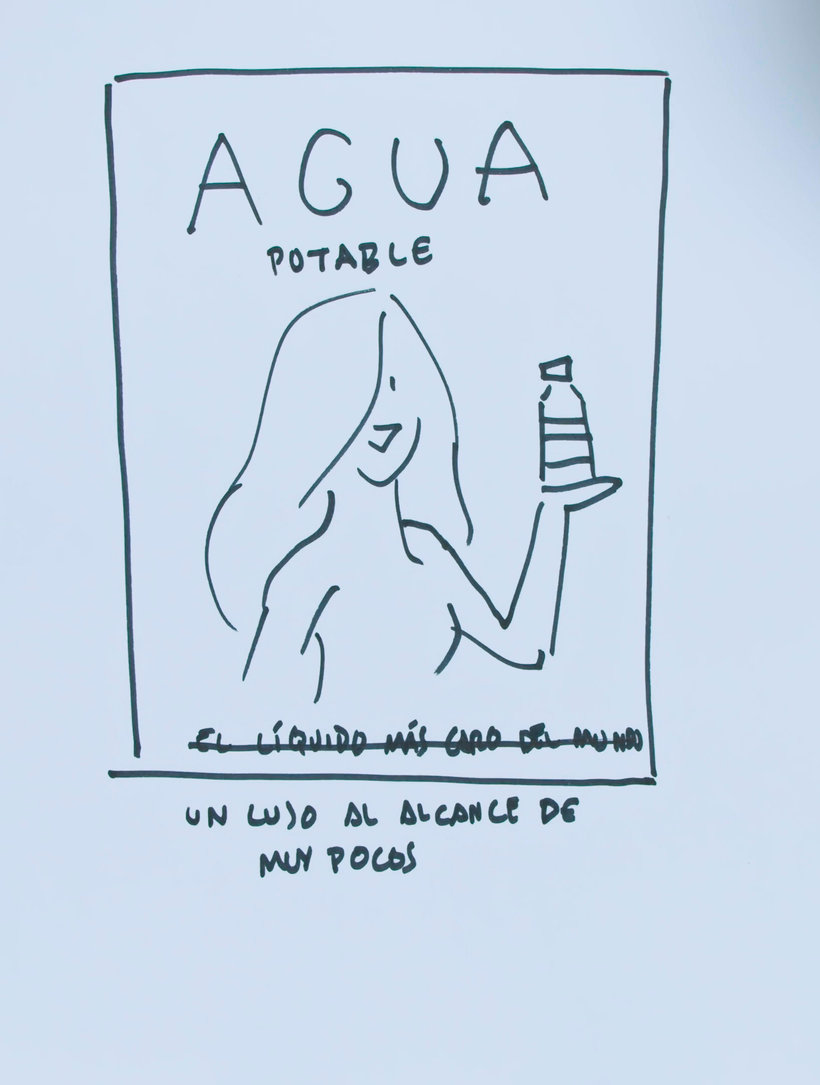 AGUA
POTABLE
EL LÍQUIDO MÁS CARO DEL MUNDO
UN LUJO AL ALCANCE DE
MUY POCOS